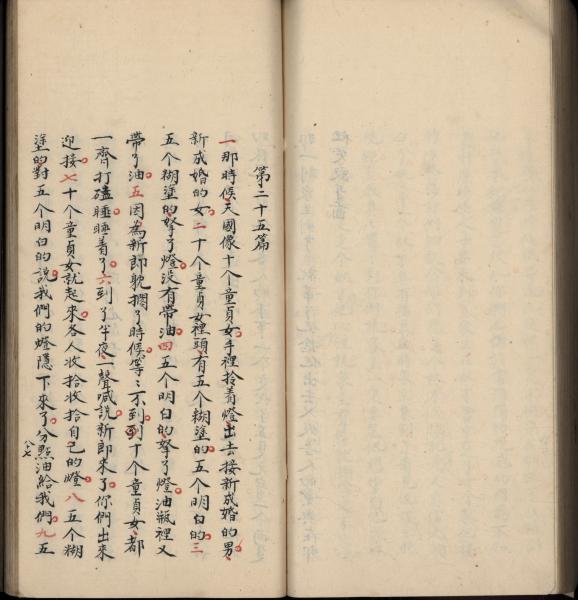 第二十五篇
一那時候天國像十个童貞女手裡拎着燈出去接新成婚的男
新成婚的女二十个童貞女裡頭有五个糊塗的五个明白的三
五个糊塗的拏了燈没有帶油四五个明白的拏了燈油瓶裡又
帶了油五因為新郎躭擱了時候等〻不到到十个童貞女都
一齊打磕睡睡着了六到了半夜一聲喊說新郎來了你們出來
迎接七十个童貞女就起來各人收拾收拾自己的燈八五个糊
塗的對五个明白的說我們的燈隱下來了分點油給我們九五
八十七